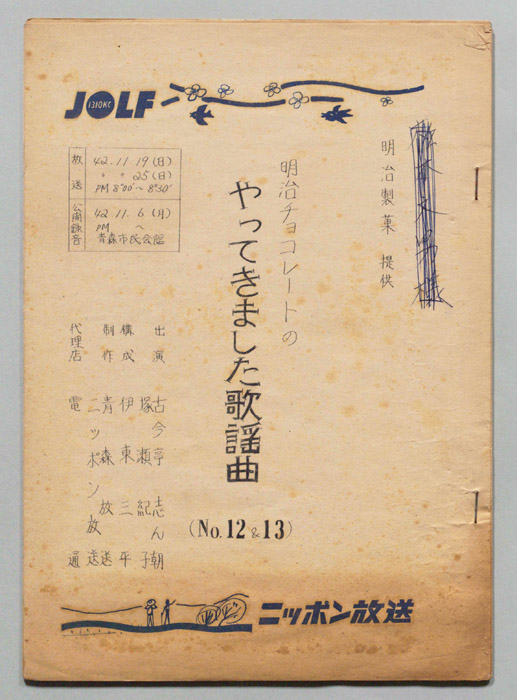 JOLF
1310KC
明治製菓 提供
明治チョコレートの
やってきました歌謡曲
(No.12&13)
放送
42.11.19(日)
〃 〃 25(日)
PM 8°00'~8°30'
公開録音
42.11.6(月)
PM ～
青森市民会館
出演 古今亭 志ん朝
塚瀬 紀子
構成 伊東 三平
制作 青森放送
ニッポン放送
代理店 電通
ニッポン放送